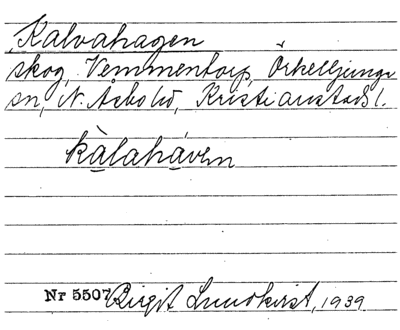 Kalvahagen
skog, Vemmentorp, Örkelljunga
sn, N. Åsbo hd, Kristianstads l.
kàlaháven
Nr 5507 Birgit Lundkvist, 1939.